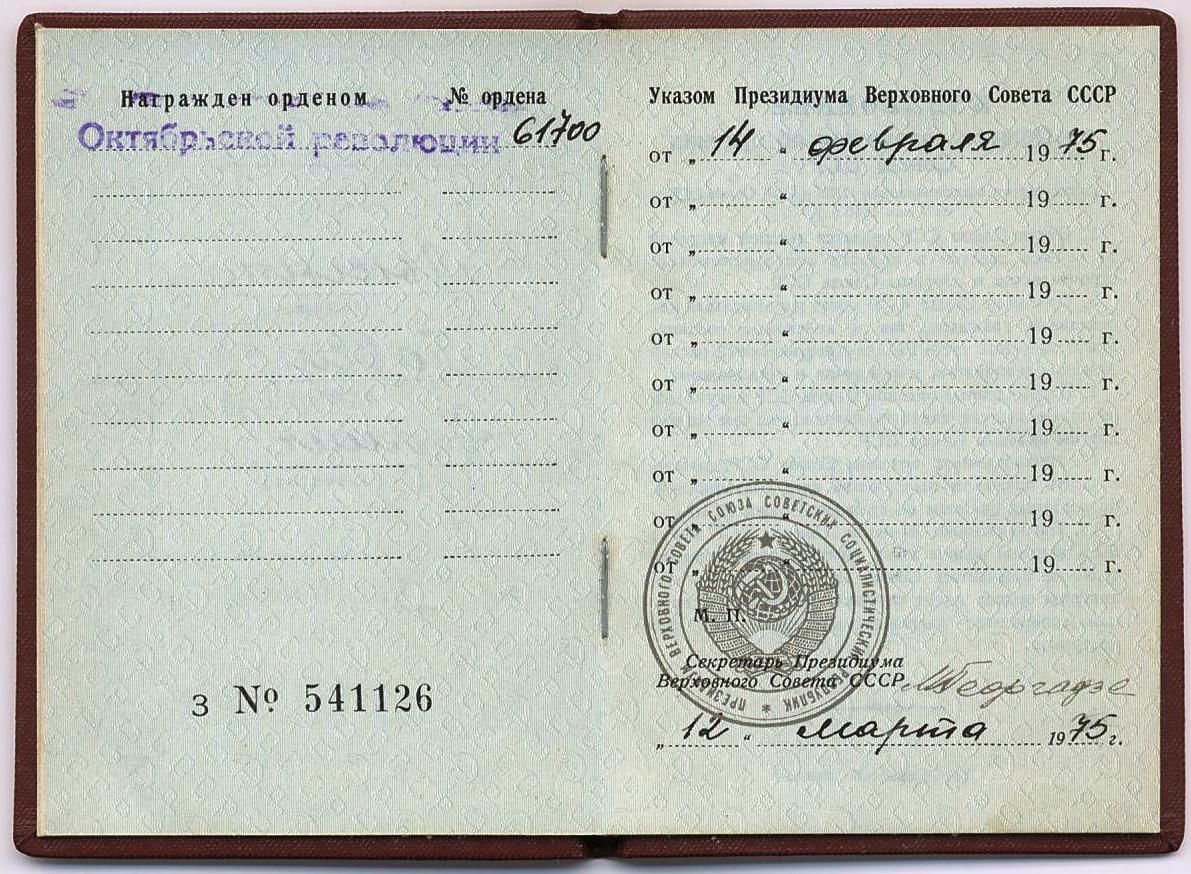 Награжден орденом № ордена
Октябрьской революции 61700
З № 541126
Указом Президиума Верховного Совета СССР
от „ 14 “ февраля 1975 г.
от „ “ 19 г.
от „ “ 19 г.
от „ “ 19 г.
от „ “ 19 г.
от „ “ 19 г.
от „ “ 19 г.
от „ “ 19 г.
от „ “ 19 г.
от „ “ 19 г.
ПРЕЗИДИУМ ВЕРХОВНОГО СОВЕТА СОЮЗА СОВЕТСКИХ СОЦИАЛИСТИЧЕСКИХ РЕСПУБЛИК
М. П.
Секретарь Президиума
Верховного Совета СССР МГеоргадзе
„ 12 “ марта 1975 г.